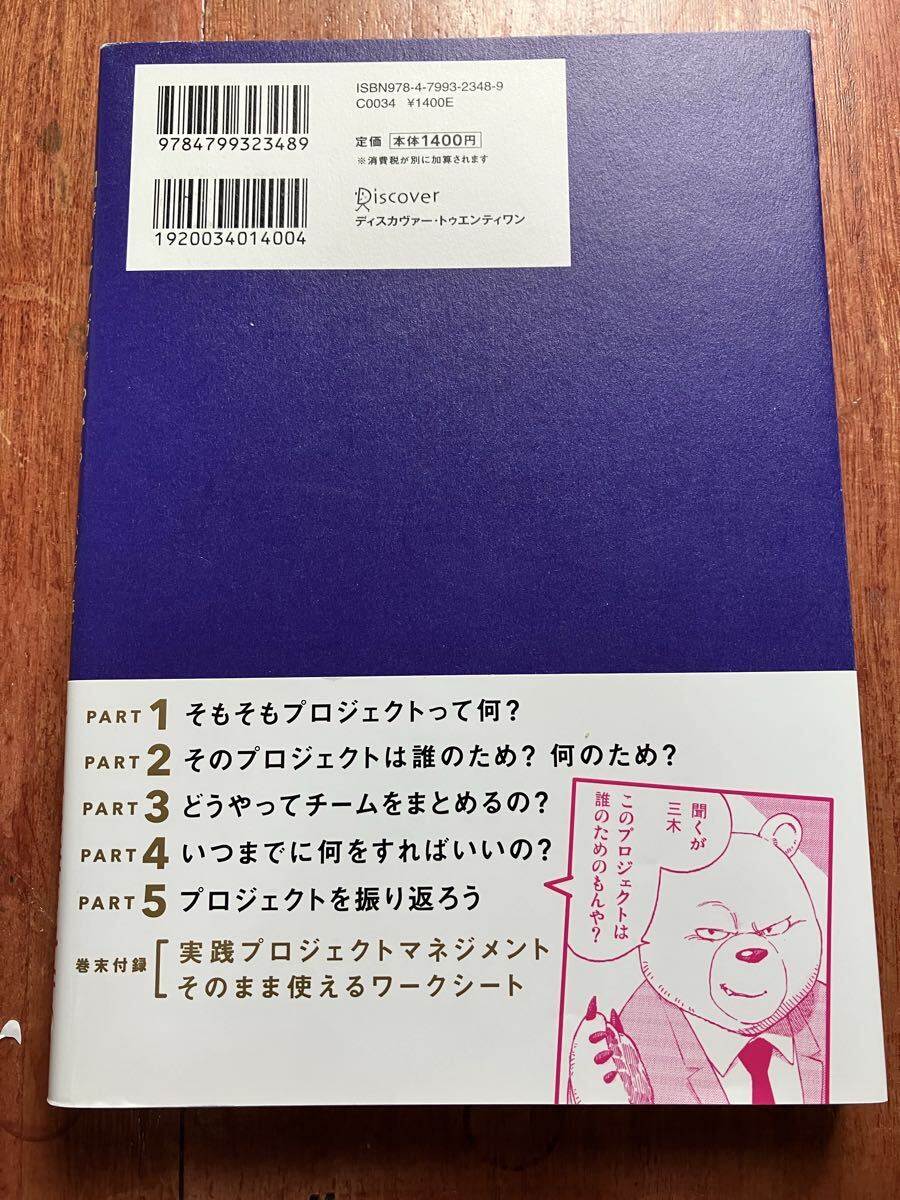 ISBN978-4-7993-2348-9
C0034 ¥1400E
9784799323489
定価 本体1400円
※消費税が別に加算されます
Discover
ディスカヴァー・トゥエンティワン
1920034014004
PART 1 そもそもプロジェクトって何?
PART 2 そのプロジェクトは誰のため? 何のため?
PART 3 どうやってチームをまとめるの?
PART 4 いつまでに何をすればいいの?
PART 5 プロジェクトを振り返ろう
巻末付録
実践プロジェクトマネジメント
そのまま使えるワークシート
聞くが
三木
このプロジェクトは
誰のためのもんや?